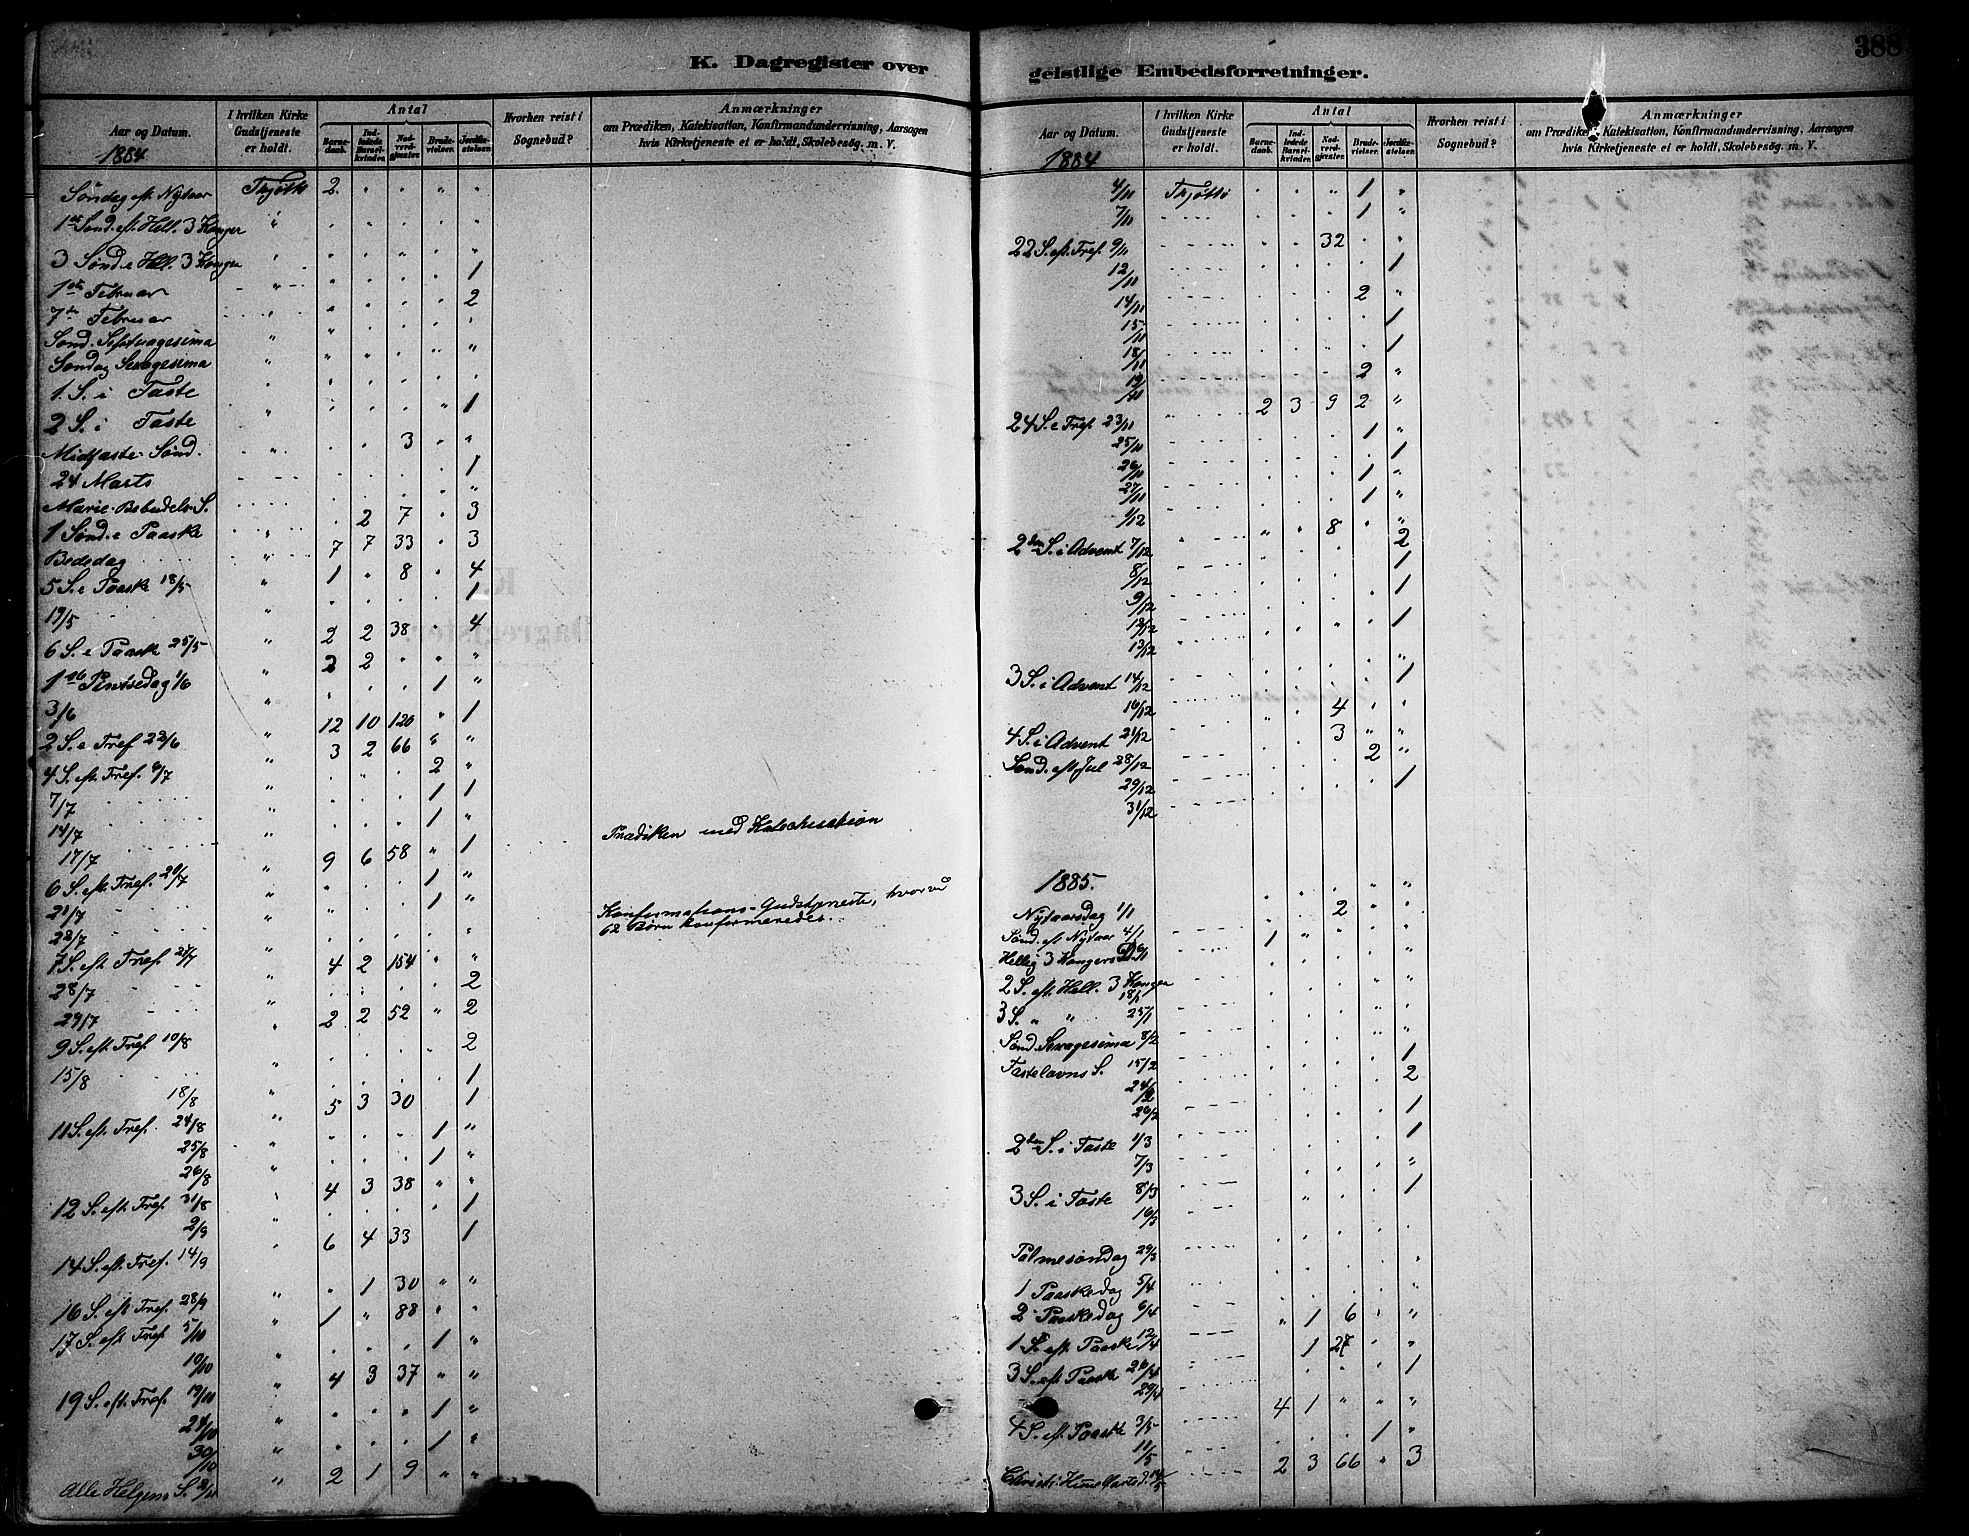 K. Dagregister over
geistlige Embedsforretninger.
388
Aar og Datum.
1884
I hvilken Kirke Gudstjeneste er holdt.
Antal
Barnedaab.
Indledede Barselkvinder.
Nadverdgjester.
Brudevielser.
Jordfæstelser.
Hvorhen reist i Sognebud?
Anmærkninger
om Prædiken, Katekisation, Konfirmandundervisning, Aarsagen
hvis Kirketjeneste ei er holdt, Skolebesøg. m. V.
Søndag eft. Nytaar Thjøttø 2 " " " "
1ste Sønd. eft. Hell. 3 Konger
3 Sønd. e Hell. 3 Konger
1ste Februar 1
7de Februar 2
Sønd. Septuagesima
Søndag Sexagesima
1. S. i Faste
2 S. i Faste 1
Midfaste-Sønd. 3
24 Marts 1
Marie-Bebudels-S.
1 Sønd. e Paaske 2 7 3
Bededag 7 7 33 3
5 S. e Paaske 18/5 1 " 8 " 4
19/5 1
6 S. e Paaske 25/5 2 2 38 4
1ste Pintsedag 1/6 2 2
3/6 1
2 S. e Tref 22/6 12 10 120 " 1
4 S. eft. Tref. 6/7 3 2 66
7/7 2
14/7 1 1
17/7 1
Prædiken med Katechisation
6 S. eft. Tref. 20/7 9 6 58 " 1
21/7 1
22/7 1
Konfirmations-Gudstjeneste, hvorved
62 Børn konfirmeredes.
7 S. eft. Tref 27/7
28/7 4 2 154
29/7 2
9 S. eft. Tref. 10/8 2 2 52 " 2
15/8 2
18/8 1
11 S. eft. Tref. 24/8 5 3 30 1
25/8 1
26/8 1
12 S. eft. Tref. 31/8 4 3 38
2/9 1
14 S. eft. Tref. 14/9 6 4 33 1
16 S. eft Tref. 28/9 1 30
17 S. eft. Tref. 5/10 1 " 88
10/10 1
19 S. eft. Tref. 19/10 4 3 37
1
30/10 1
Alle Helgens S. 2/11 2 1 9
Aar og Datum.
1884
I hvilken Kirke Gudstjeneste er holdt.
Antal
Barnedaab.
Indledede Barselkvinder.
Nadverdgjester.
Brudevielser.
Jordfæstelser.
Hvorhen reist i Sognebud?
Anmærkninger
om Prædiken, Katekisation, Konfirmandundervisning, Aarsagen
hvis Kirketjeneste ei er holdt, Skolebesøg. m. V.
4/11 Thjøttø 1
7/11 1
22 S. eft. Tref. 9/11 32
12/11 1
14/11 2
15/11 1
18/11 1
19/11 2
24 S. e Tref. 23/11 2 3 9 2
25/11 1
26/11 1
27/11 1
1/12 1
2den S. i Advent 7/12 8
8/12 2
9/12 1
12/12 1
13/12 1
3 S. i Advent 14/12
16/12 1
4 S. i Advent 21/12 4
Sønd. eft Jul 28/12 3
29/12 2
31/12 1
1885.
Nytaarsdag 1/1
Sønd. eft Nytaar 4/1 2
Hellig 3 Kongers D. 6/1 1
2 S. eft. Hell. 3 Konger
18/1
3 S. " " 25/1
Sønd. Sexagesima 8/2
Fastelavns S. 15/2
24/2 1
26/2 2
2den S. i Faste 1/3 1
7/3 1
3 S. i Faste 8/3
16/3 1
Palmesøndag 29/3
1 Paaskedag 5/4
2 Paaskedag 6/4
1 S. eft. Paaske 12/4 1 6
3 S. eft Paaske 26/4 1 27
29/4 1
4 S. eft Paaske 3/5 4 1
11/5 1
Christi Himmelfarts d. 14/5 2 3 66 " 3